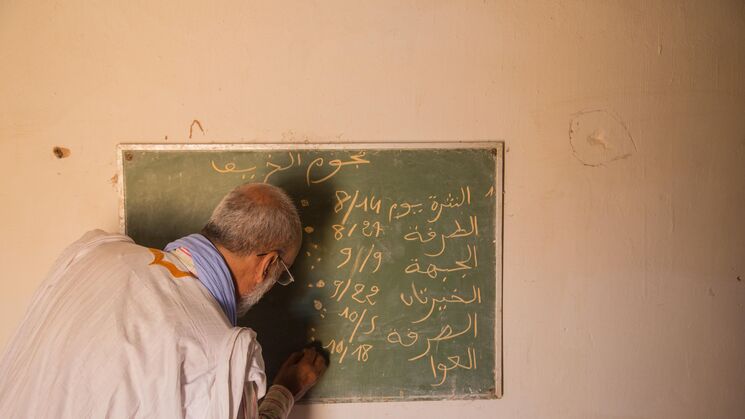 نجوم الخريف
النثرة يوم 8/14
الطرفة 8/27
الجبهة 9/9
الخيرتان 9/22
الصرفة 10/5
العوا 10/18